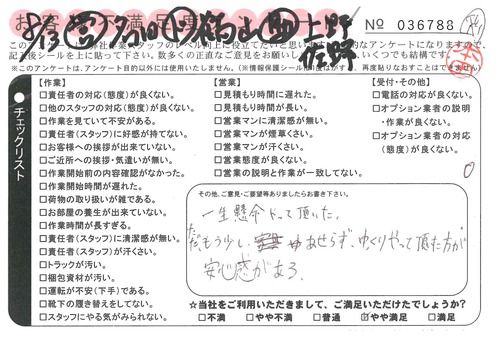 № 036788
記入後シールを上に貼って下さい。数多くの正直なご意見をお願いします。いくつでも結構です。
※このアンケートは、アンケート目的以外には使用いたしません。
チェックリスト
【作業】
□責任者の対応(態度)が良くない。
□他のスタッフの対応(態度)が良くない。
□作業を見ていて不安がある。
□責任者(スタッフ)に好感が持てない。
□お客様への挨拶が出来ていない。
□ご近所への挨拶・気遣いが無い。
□作業開始前の内容確認がなかった。
□作業開始時間が遅れた。
□荷物の取り扱いが雑である。
□お部屋の養生が出来ていない。
□作業時間が長すぎる。
□責任者(スタッフ)に清潔感が無い。
□責任者(スタッフ)が汗くさい。
□トラックが汚い。
□梱包資材が汚い。
□運転が不安(下手)である。
□靴下の履き替えをしてない。
□スタッフにやる気がみられない。
【営業】
□見積もり時間に遅れた。
□見積もり時間が長い。
□営業マンに清潔感が無い。
□営業マンが煙草くさい。
□営業マンが汗くさい。
□営業態度が良くない。
□営業の説明と作業が一致してない。
【受付・その他】
□電話の対応が良くない。
□オプション業者の説明
・作業が良くない。
□オプション業者の対応
(態度)が良くない。
その他、ご意見・ご要望等ありましたらお書き下さい。
一生懸命やって頂いた。
ただ、もう少し あせらず、ゆっくりやって頂た方が
安心感がある。
☆当社をご利用いただきまして、ご満足いただけたでしょうか?
□不満 □やや不満 □普通 ☑やや満足 □満足